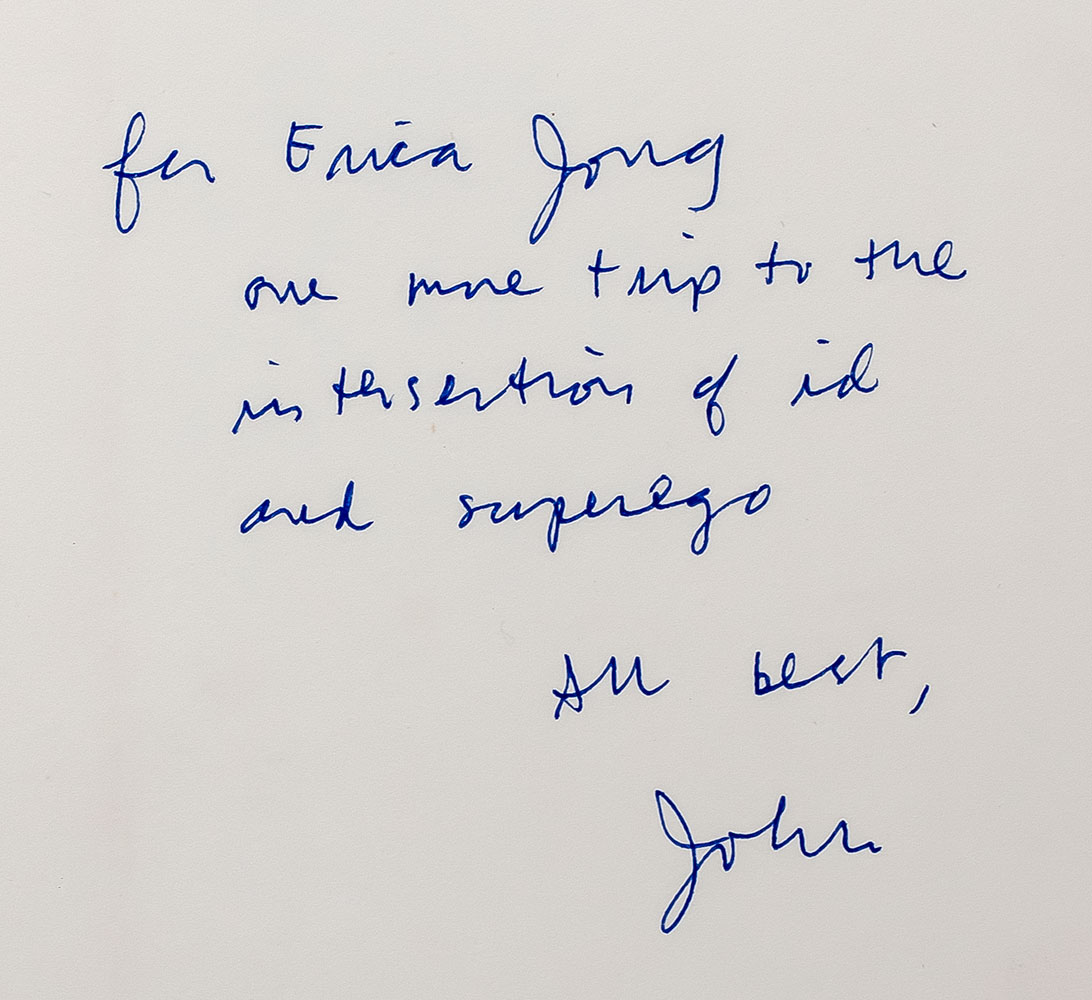 for Erica Jong
one more trip to the
intersection of id
and superego
All best,
John